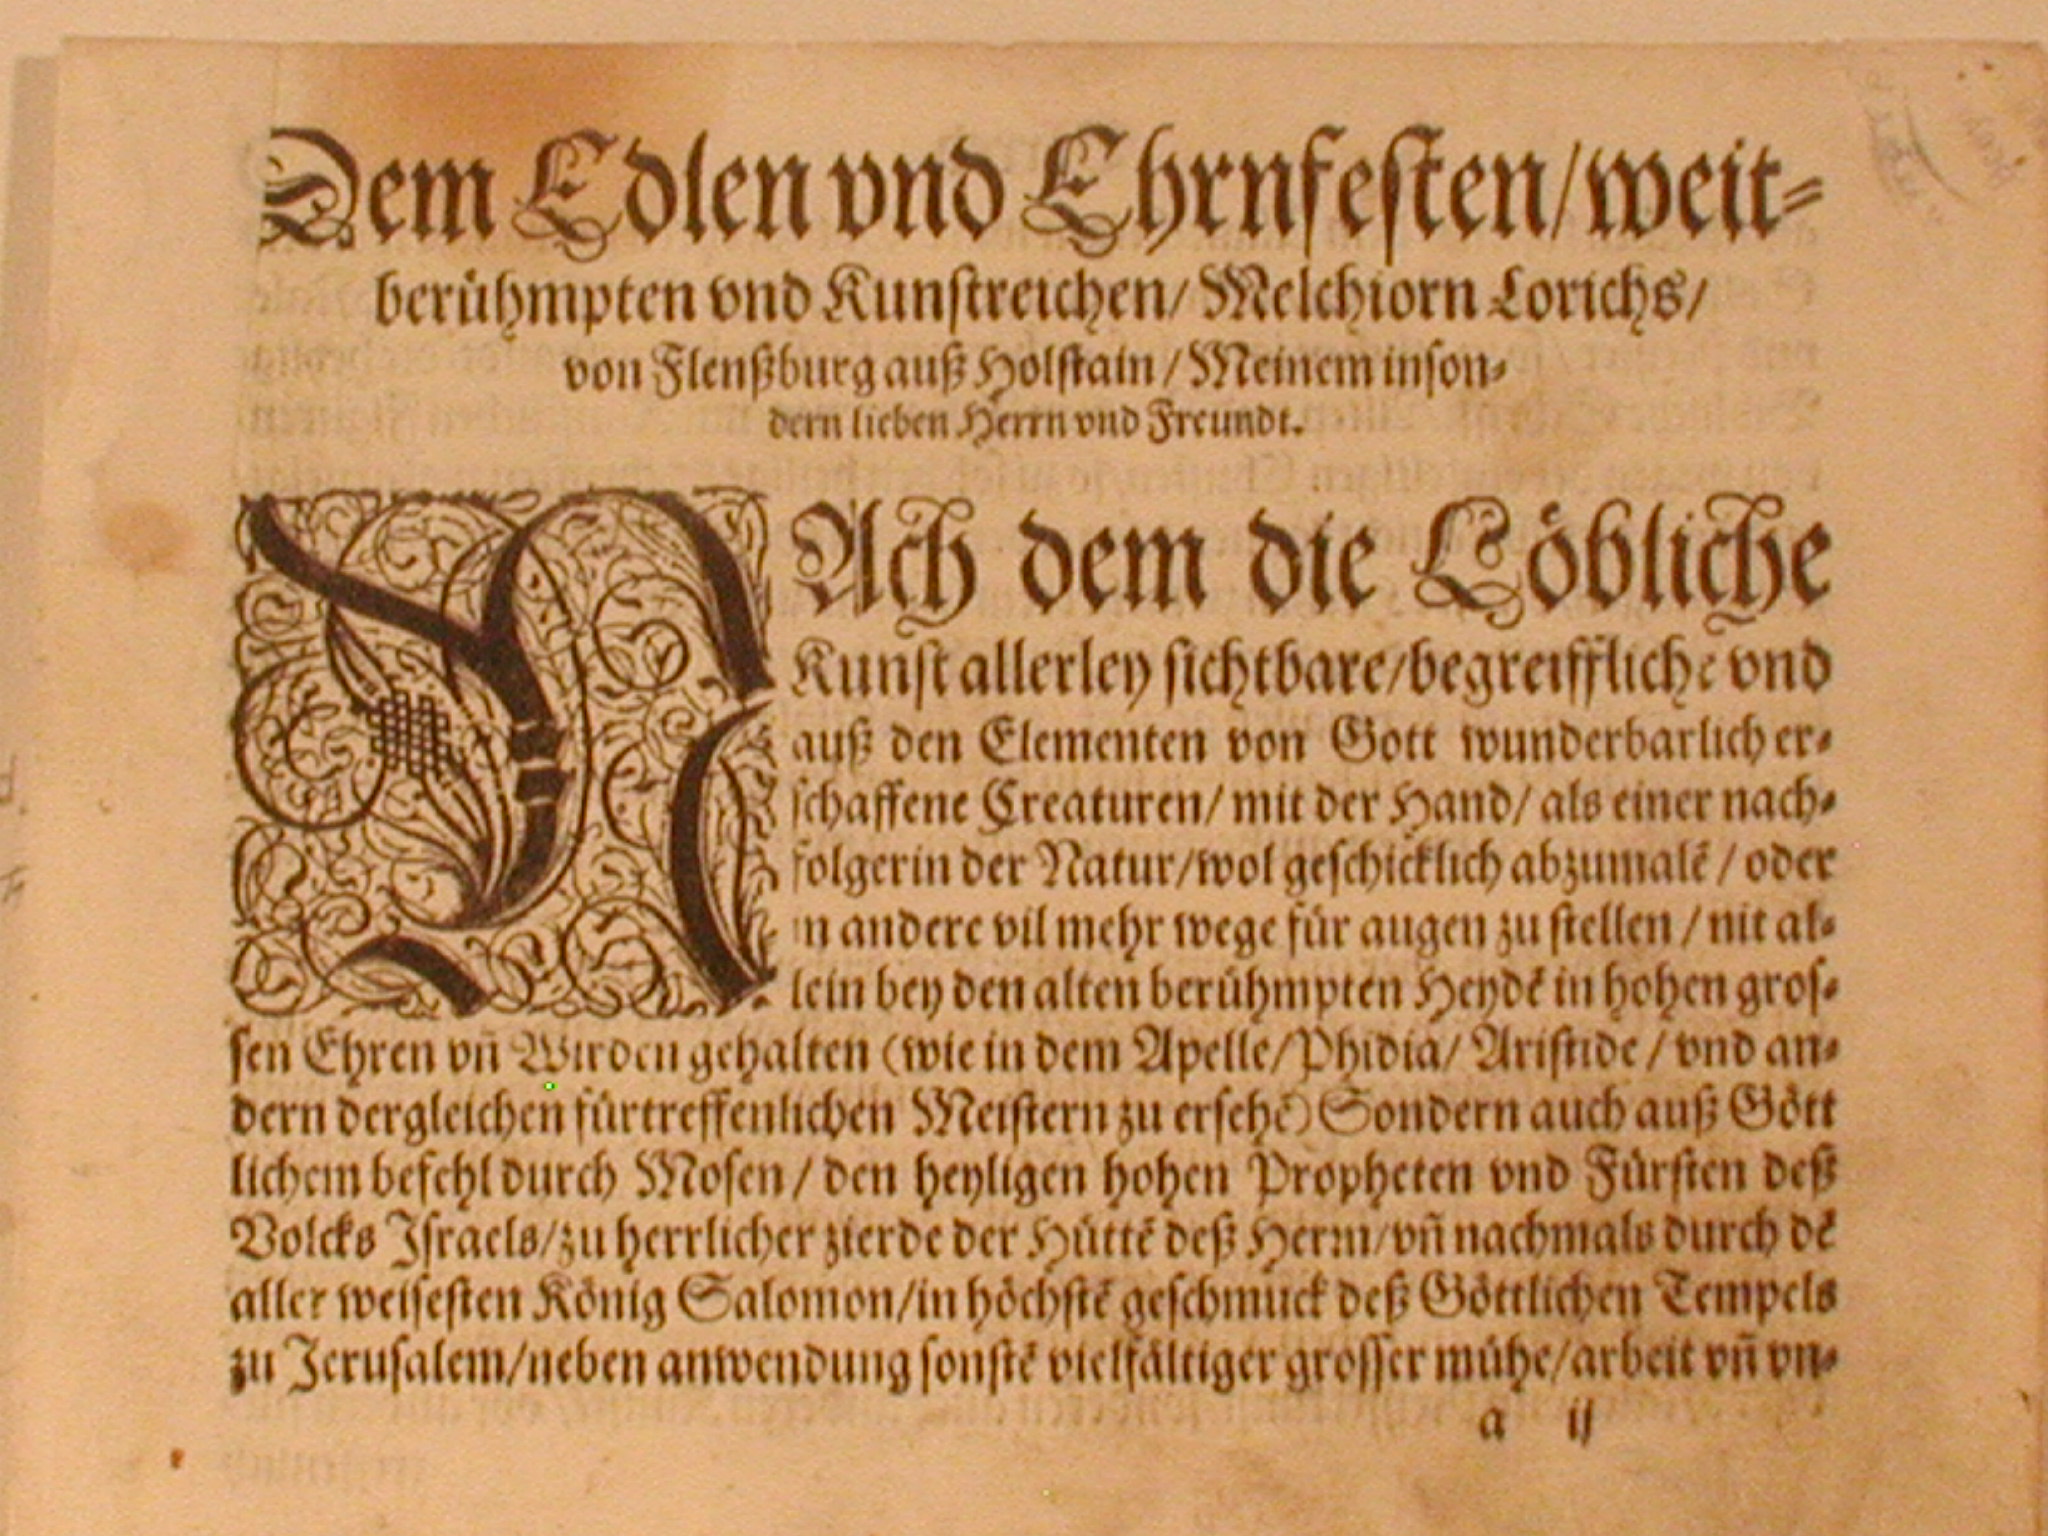 Dem Edlen vnd Ehrnfesten/weit-
berühmpten vnd Kunstreichen/ Melchiorn Lorichs/
von Flenßburg auß Holstain/ Meinem inson-
dern lieben Herrn vnd Freundt.
NAch dem die Löbliche
Kunst allerley sichtbare/begreiffliche vnd
auß den Elementen von Gott wunderbarlich er-
schaffene Creaturen/ mit der Hand/ als einer nach-
folgerin der Natur/wol geschicklich abzumalẽ/ oder
in andere vil mehr wege für augen zu stellen/ nit al-
lein bey den alten berühmpten Heydẽ in hohen gros-
sen Ehren vñ Wirden gehalten (wie in dem Apelle/Phidia/ Aristide/ vnd an-
dern dergleichen fürtreffenlichen Meistern zu ersehẽ) Sondern auch auß Gött
lichem befehl durch Mosen/ den heyligen hohen Propheten vnd Fürsten deß
Volcks Israels/zu herrlicher zierde der Hüttẽ deß Herrn/vñ nachmals durch dẽ
aller weisesten König Salomon/in höchstẽ geschmuck deß Göttlichen Tempels
zu Jerusalem/neben anwendung sonstẽ vielfältiger grosser mühe/arbeit vñ vn-
a ij